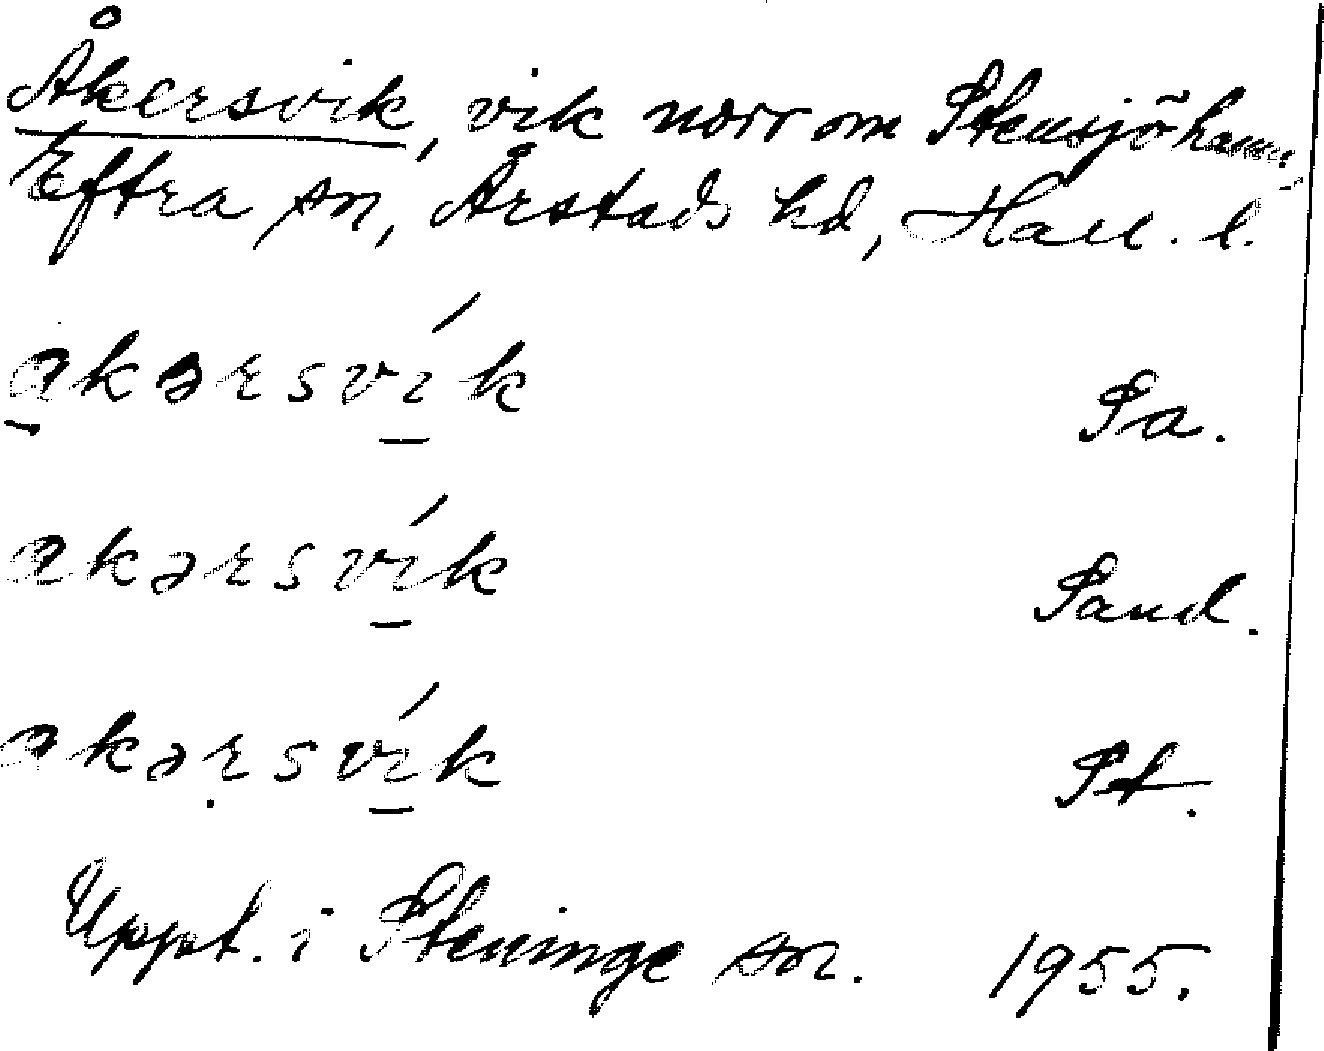 Åkersvik, vik norr om Stensjöhamn,
Eftra sn, Årstads hd, Hall. l.
a̠kərsví̠k Sa.
akərsví̠k Sand.
akəṛsví̠k St.
Uppt. i Steninge sn. 1955.